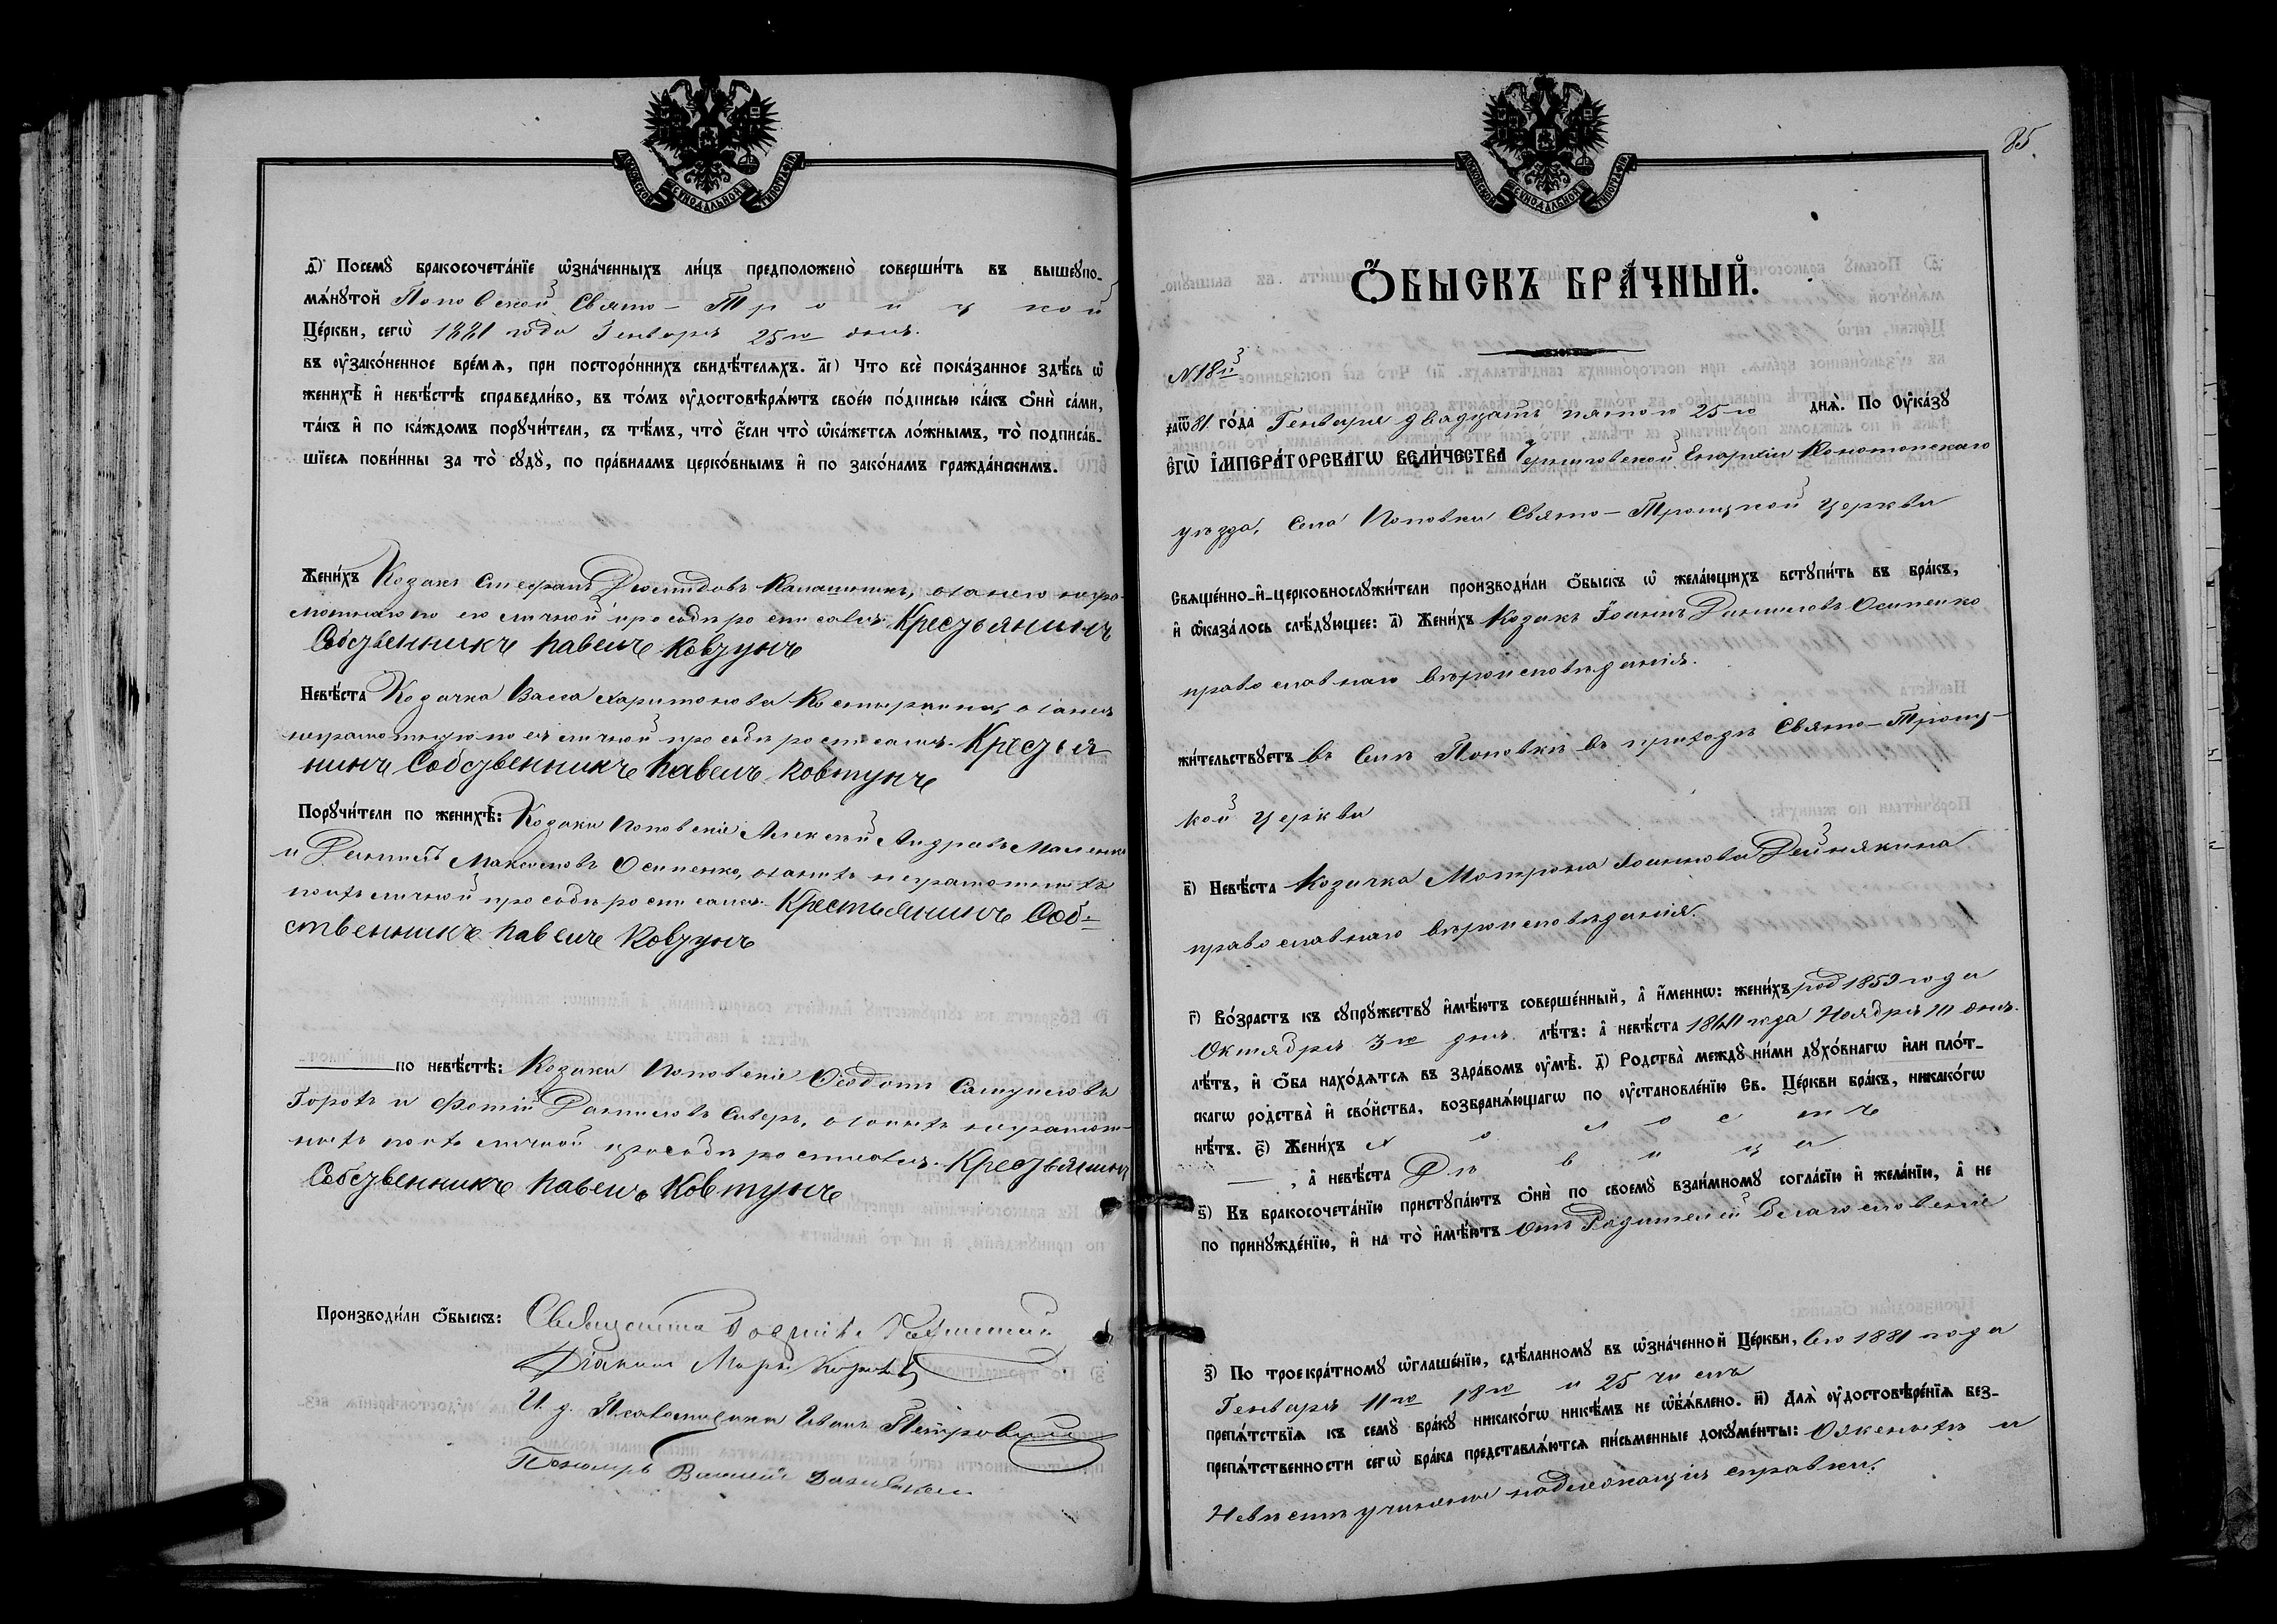 МОСКОВСКОЙ СУНОДАЛЬНОЙ ТИПОГРАФІИ
д҃) Посемꙋ̀ бракосочета́нїе ѡ҆зна́ченныхъ ли́цъ предположено̀ соверши́ть въ вышеꙋпо-
мѧ́нꙋтой Поповской Свято-Троицкой
Це́ркви, сегѡ̀ 1881 года Генваря 25го дня.
въ ᲂу҆зако́ненное вре́мѧ, при посторо́ннихъ свидѣ́телѧхъ. а҃і) Что̀ всѐ пока́занное здѣ́сь ѡ҆
женихѣ̀ и҆ невѣ́стѣ справедли́во, въ то́мъ ᲂу҆достовѣрѧ́ютъ свое́ю по́дписью ка́къ ѻ҆нѝ са́ми,
та́къ и҆ по ка́ждомъ порꙋчи́тели, съ тѣ́мъ, что̀ є҆́сли что̀ ѡ҆ка́жетсѧ ло́жнымъ, то̀ подписа́в-
шїесѧ пови́нны за то̀ сꙋдꙋ̀, по пра́виламъ церко́внымъ и҆ по зако́намъ гражда́нскимъ.
Жени́хъ Козакъ Стефанъ Диомидовъ, а за него негра-
мотнаго по его личной просьбѣ росписался Крестьянинъ
Собственникъ Павелъ Ковтунъ
Невѣ́ста Козачка Васса Харитонова, а за нея
неграмотную по ея личной просьбѣ росписался Крестья
нинъ Собственникъ Павелъ Ковтунъ
Порꙋчи́тели по женихѣ̀: Козаки Поповскіе Алексѣй Андреевъ
и Даніилъ Максимовъ Осипенко, а за нихъ неграмотныхъ
по ихъ личной просьбѣ росписался Крестьянинъ Соб-
ственникъ Павелъ Ковтунъ
по невѣ́стѣ: Козаки Поповскіе Ѳеодотъ Самуиловъ
Горохъ и Фотій Даниловъ, а за нихъ неграмот-
ныхъ по ихъ личной просьбѣ росписался Крестьянинъ
Собственникъ Павелъ Ковтунъ
Производи́ли ѻ҆́быскъ: Священникъ
Діаконъ Маркъ
И. д. Псаломщика Иванъ Петровскій
Пономарь Василій
85.
МОСКОВСКОЙ СУНОДАЛЬНОЙ ТИПОГРАФІИ
Ѻ҆́БЫСКЪ БРА́ЧНЫЙ.
№18й
҂аѿ81 го́да Генваря двадцать пятого 25го днѧ̀. По Оу҆ка́зꙋ
Є҆гѡ̀ І҆мпера́торскагѡ Вели́чества Черниговской Епархіи Конотопскаго
уѣзда, Села Поповки Свято-Троицкой Церкви
Свѧще́нно-и҆-церковнослꙋжи́тели производи́ли ѻ҆́быскъ ѡ҆ жела́ющихъ встꙋпи́ть въ бра́къ,
и҆ ѡ҆каза́лось слѣ́дꙋющее: а҃) Жени́хъ Козакъ Іоаннъ Даниловъ Осипенко
православнаго вѣроисповѣданія.
жи́тельствꙋетъ въ Селѣ Поповкѣ въ приходѣ Свято-Троиц-
кой Церкви
в҃) Невѣ́ста Козачка Мотрона Іоаннова Дейнякина
православнаго вѣроисповѣданія.
г҃) Во́зрастъ къ сꙋпрꙋ́жествꙋ и҆мѣ́ютъ соверше́нный, а҆ и҆́меннѡ: жени́хъ род 1859 года
Октября 3го дня. лѣ́тъ: а҆ невѣ́ста года Ноября дня.
лѣ́тъ, и҆ ѻ҆́ба нахо́дѧтсѧ въ здра́вомъ ᲂу҆мѣ̀. д҃) Родства̀ междꙋ̀ ни́ми дꙋхо́внагѡ и҆лѝ пло́т-
скагѡ родства̀ и҆ сво́йства, возбранѧ́ющагѡ по ᲂу҆становле́нїю Св. Це́ркви бра́къ, никако́гѡ
нѣ́тъ. є҃) Жени́хъ холостъ
, а҆ невѣ́ста Дѣвица
ѕ҃) Къ бракосочета́нїю пристꙋпа́ютъ ѻ҆нѝ по своемꙋ̀ взаи́мномꙋ согла́сїю и҆ жела́нїю, а҆ не
по принꙋжде́нїю, и҆ на то̀ и҆мѣ́ютъ отъ Родителей благословеніе
з҃) По троекра́тномꙋ ѡ҆глаше́нїю, сдѣ́ланномꙋ въ ѡ҆зна́ченной Це́ркви, Сего 1881 года
Генваря 11го 18го и 25 числа
препѧ́тствїѧ къ семꙋ̀ бра́кꙋ никако́гѡ никѣ́мъ не ѡ҆б̾ѧ́влено. и҃) Длѧ̀ ᲂу҆достовѣре́нїѧ без-
препѧ́тственности сегѡ̀ бра́ка представлѧ́ютсѧ пи́сьменные докꙋме́нты: О женихѣ и
Невѣстѣ учинены надлежащія справки.